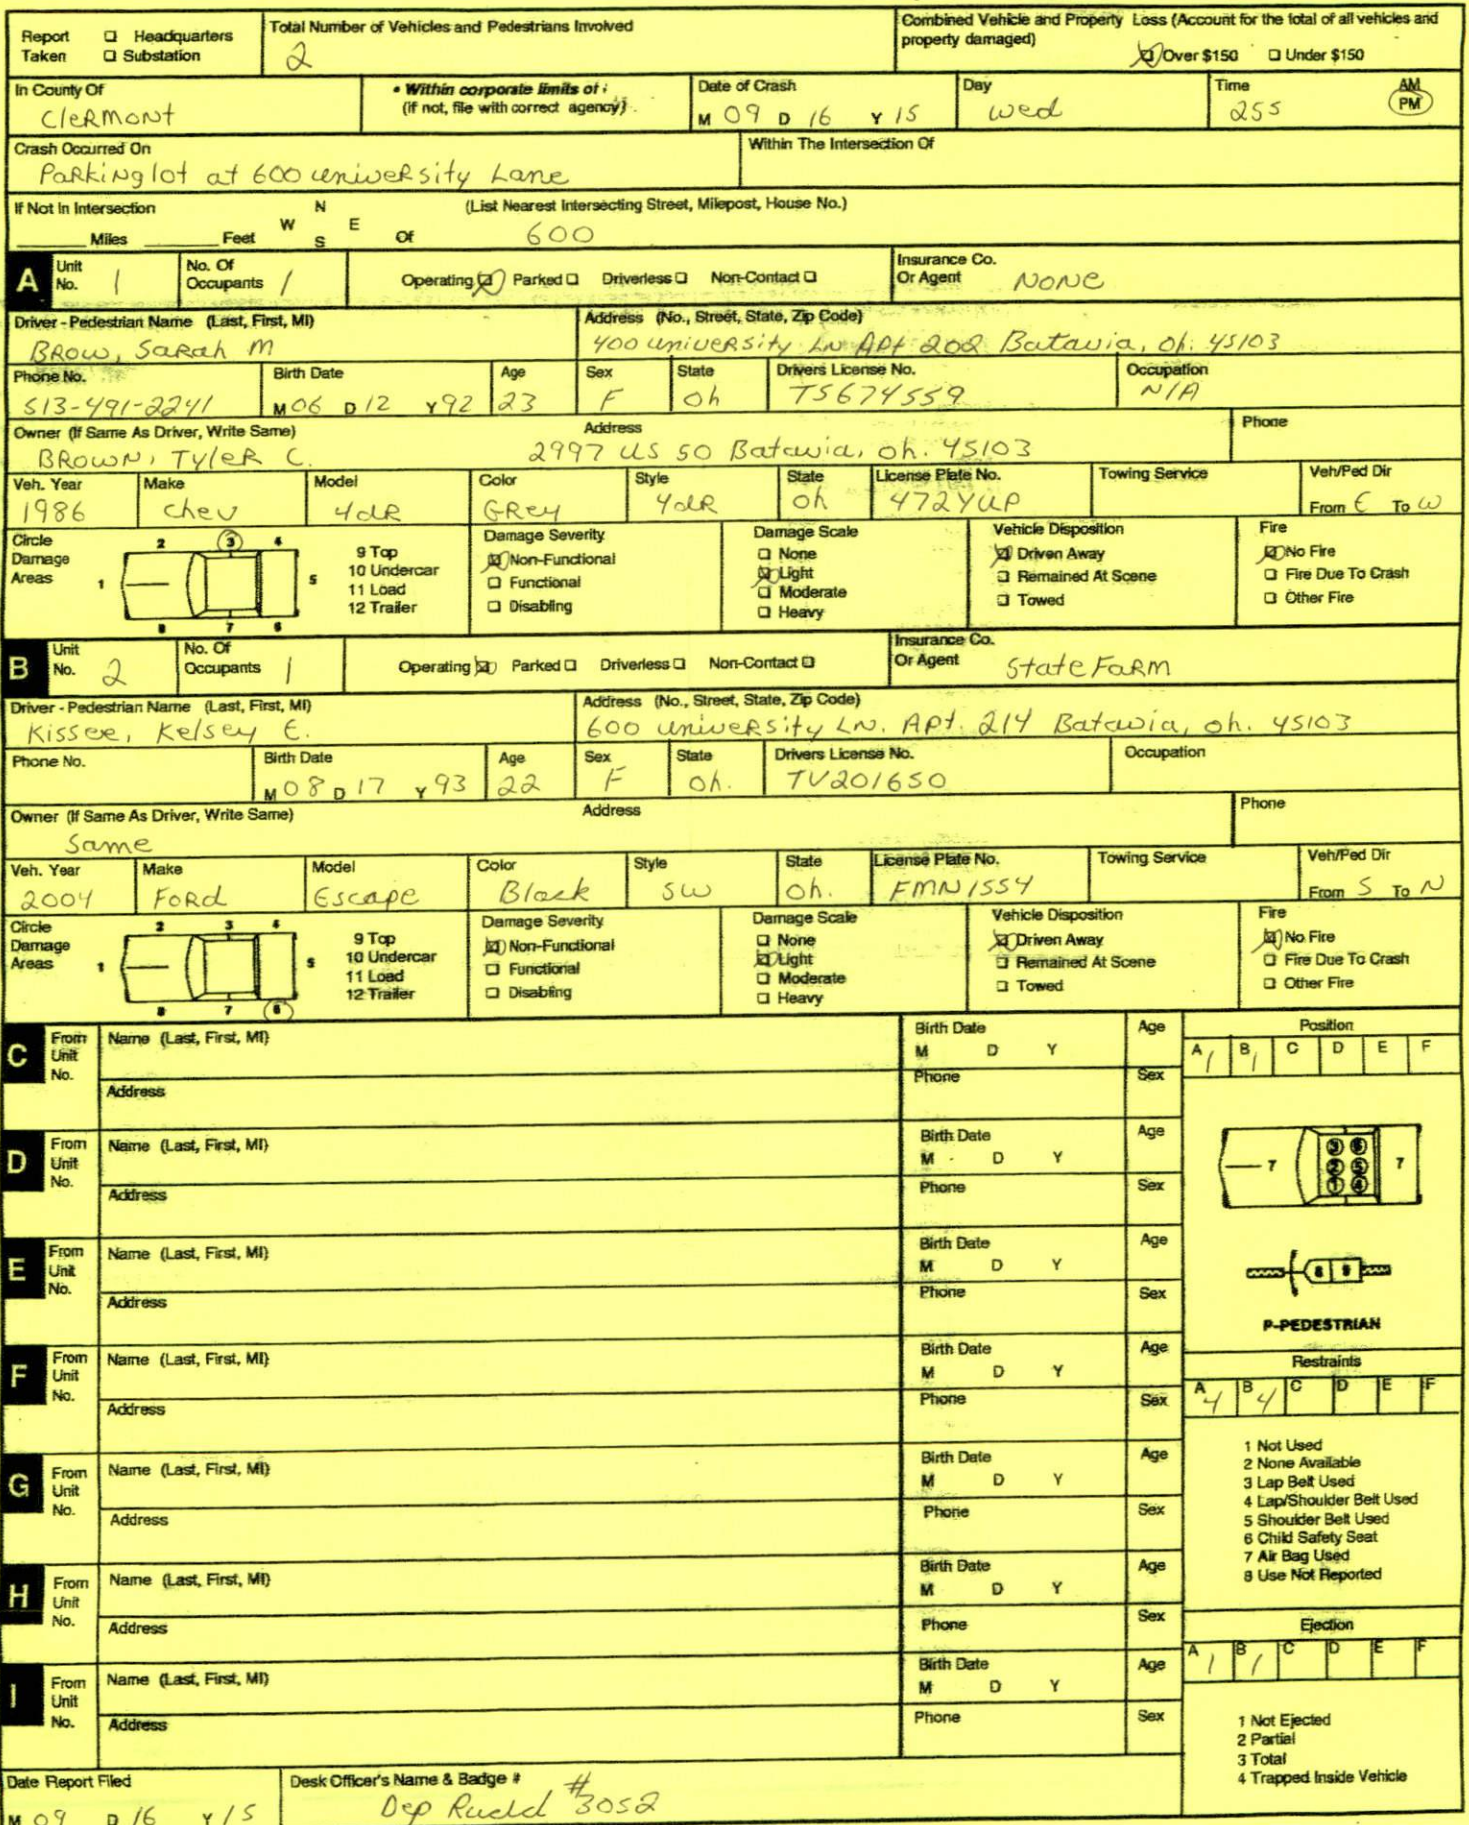 Report Taken ☐ Headquarters ☐ Substation
Total Number of Vehicles and Pedestrians Involved
2
Combined Vehicle and Property Loss (Account for the total of all vehicles and property damaged)
☒ Over $150 ☐ Under $150
In County Of
CleRmont
• Within corporate limits of :
(if not, file with correct agency)
Date of Crash
M 09 D 16 Y 15
Day
wed
Time
255
AM
PM
Crash Occurred On
Parking lot at 600 university Lane
Within The Intersection Of
If Not In Intersection
(List Nearest Intersecting Street, Milepost, House No.)
Miles Feet N W E S Of 600
A
Unit No. 1
No. Of Occupants 1
Operating ☒ Parked ☐ Driverless ☐ Non-Contact ☐
Insurance Co. Or Agent NONE
Driver - Pedestrian Name (Last, First, MI)
BROW, SaRah M
Address (No., Street, State, Zip Code)
400 university LN Apt 202 Batavia, Oh. 45103
Phone No.
513-491-2241
Birth Date
M 06 D 12 Y 92
Age
23
Sex
F
State
Oh
Drivers License No.
TS674559
Occupation
N/A
Owner (If Same As Driver, Write Same)
BROWN, TyleR C.
Address
2997 US 50 Batavia, Oh. 45103
Phone
Veh. Year
1986
Make
Chev
Model
4dR
Color
GRey
Style
4dR
State
Oh
License Plate No.
472YUP
Towing Service
Veh/Ped Dir
From E To W
Circle Damage Areas
1 2 3 4 5 6 7 8
9 Top
10 Undercar
11 Load
12 Trailer
Damage Severity
☒ Non-Functional
☐ Functional
☐ Disabling
Damage Scale
☐ None
☒ Light
☐ Moderate
☐ Heavy
Vehicle Disposition
☒ Driven Away
☐ Remained At Scene
☐ Towed
Fire
☒ No Fire
☐ Fire Due To Crash
☐ Other Fire
B
Unit No. 2
No. Of Occupants 1
Operating ☒ Parked ☐ Driverless ☐ Non-Contact ☐
Insurance Co. Or Agent State FaRm
Driver - Pedestrian Name (Last, First, MI)
Kissee, Kelsey E.
Address (No., Street, State, Zip Code)
600 university LN. Apt. 214 Batavia, Oh. 45103
Phone No.
Birth Date
M 08 D 17 Y 93
Age
22
Sex
F
State
Oh.
Drivers License No.
TV201650
Occupation
Owner (If Same As Driver, Write Same)
Same
Address
Phone
Veh. Year
2004
Make
FORd
Model
Escape
Color
Black
Style
SW
State
Oh.
License Plate No.
FMN1554
Towing Service
Veh/Ped Dir
From S To N
Circle Damage Areas
1 2 3 4 5 6 7 8
9 Top
10 Undercar
11 Load
12 Trailer
Damage Severity
☒ Non-Functional
☐ Functional
☐ Disabling
Damage Scale
☐ None
☒ Light
☐ Moderate
☐ Heavy
Vehicle Disposition
☒ Driven Away
☐ Remained At Scene
☐ Towed
Fire
☒ No Fire
☐ Fire Due To Crash
☐ Other Fire
C
From Unit No.
Name (Last, First, MI)
Address
Birth Date
M D Y
Age
Phone
Sex
D
From Unit No.
Name (Last, First, MI)
Address
Birth Date
M D Y
Age
Phone
Sex
E
From Unit No.
Name (Last, First, MI)
Address
Birth Date
M D Y
Age
Phone
Sex
F
From Unit No.
Name (Last, First, MI)
Address
Birth Date
M D Y
Age
Phone
Sex
G
From Unit No.
Name (Last, First, MI)
Address
Birth Date
M D Y
Age
Phone
Sex
H
From Unit No.
Name (Last, First, MI)
Address
Birth Date
M D Y
Age
Phone
Sex
I
From Unit No.
Name (Last, First, MI)
Address
Birth Date
M D Y
Age
Phone
Sex
Position
A 1 B 1 C D E F
7 3 6 2 5 1 4 7
8 9
P-PEDESTRIAN
Restraints
A 4 B 4 C D E F
1 Not Used
2 None Available
3 Lap Belt Used
4 Lap/Shoulder Belt Used
5 Shoulder Belt Used
6 Child Safety Seat
7 Air Bag Used
8 Use Not Reported
Ejection
A 1 B 1 C D E F
1 Not Ejected
2 Partial
3 Total
4 Trapped Inside Vehicle
Date Report Filed
M 09 D 16 Y 15
Desk Officer's Name & Badge #
Dep Rudd #3052